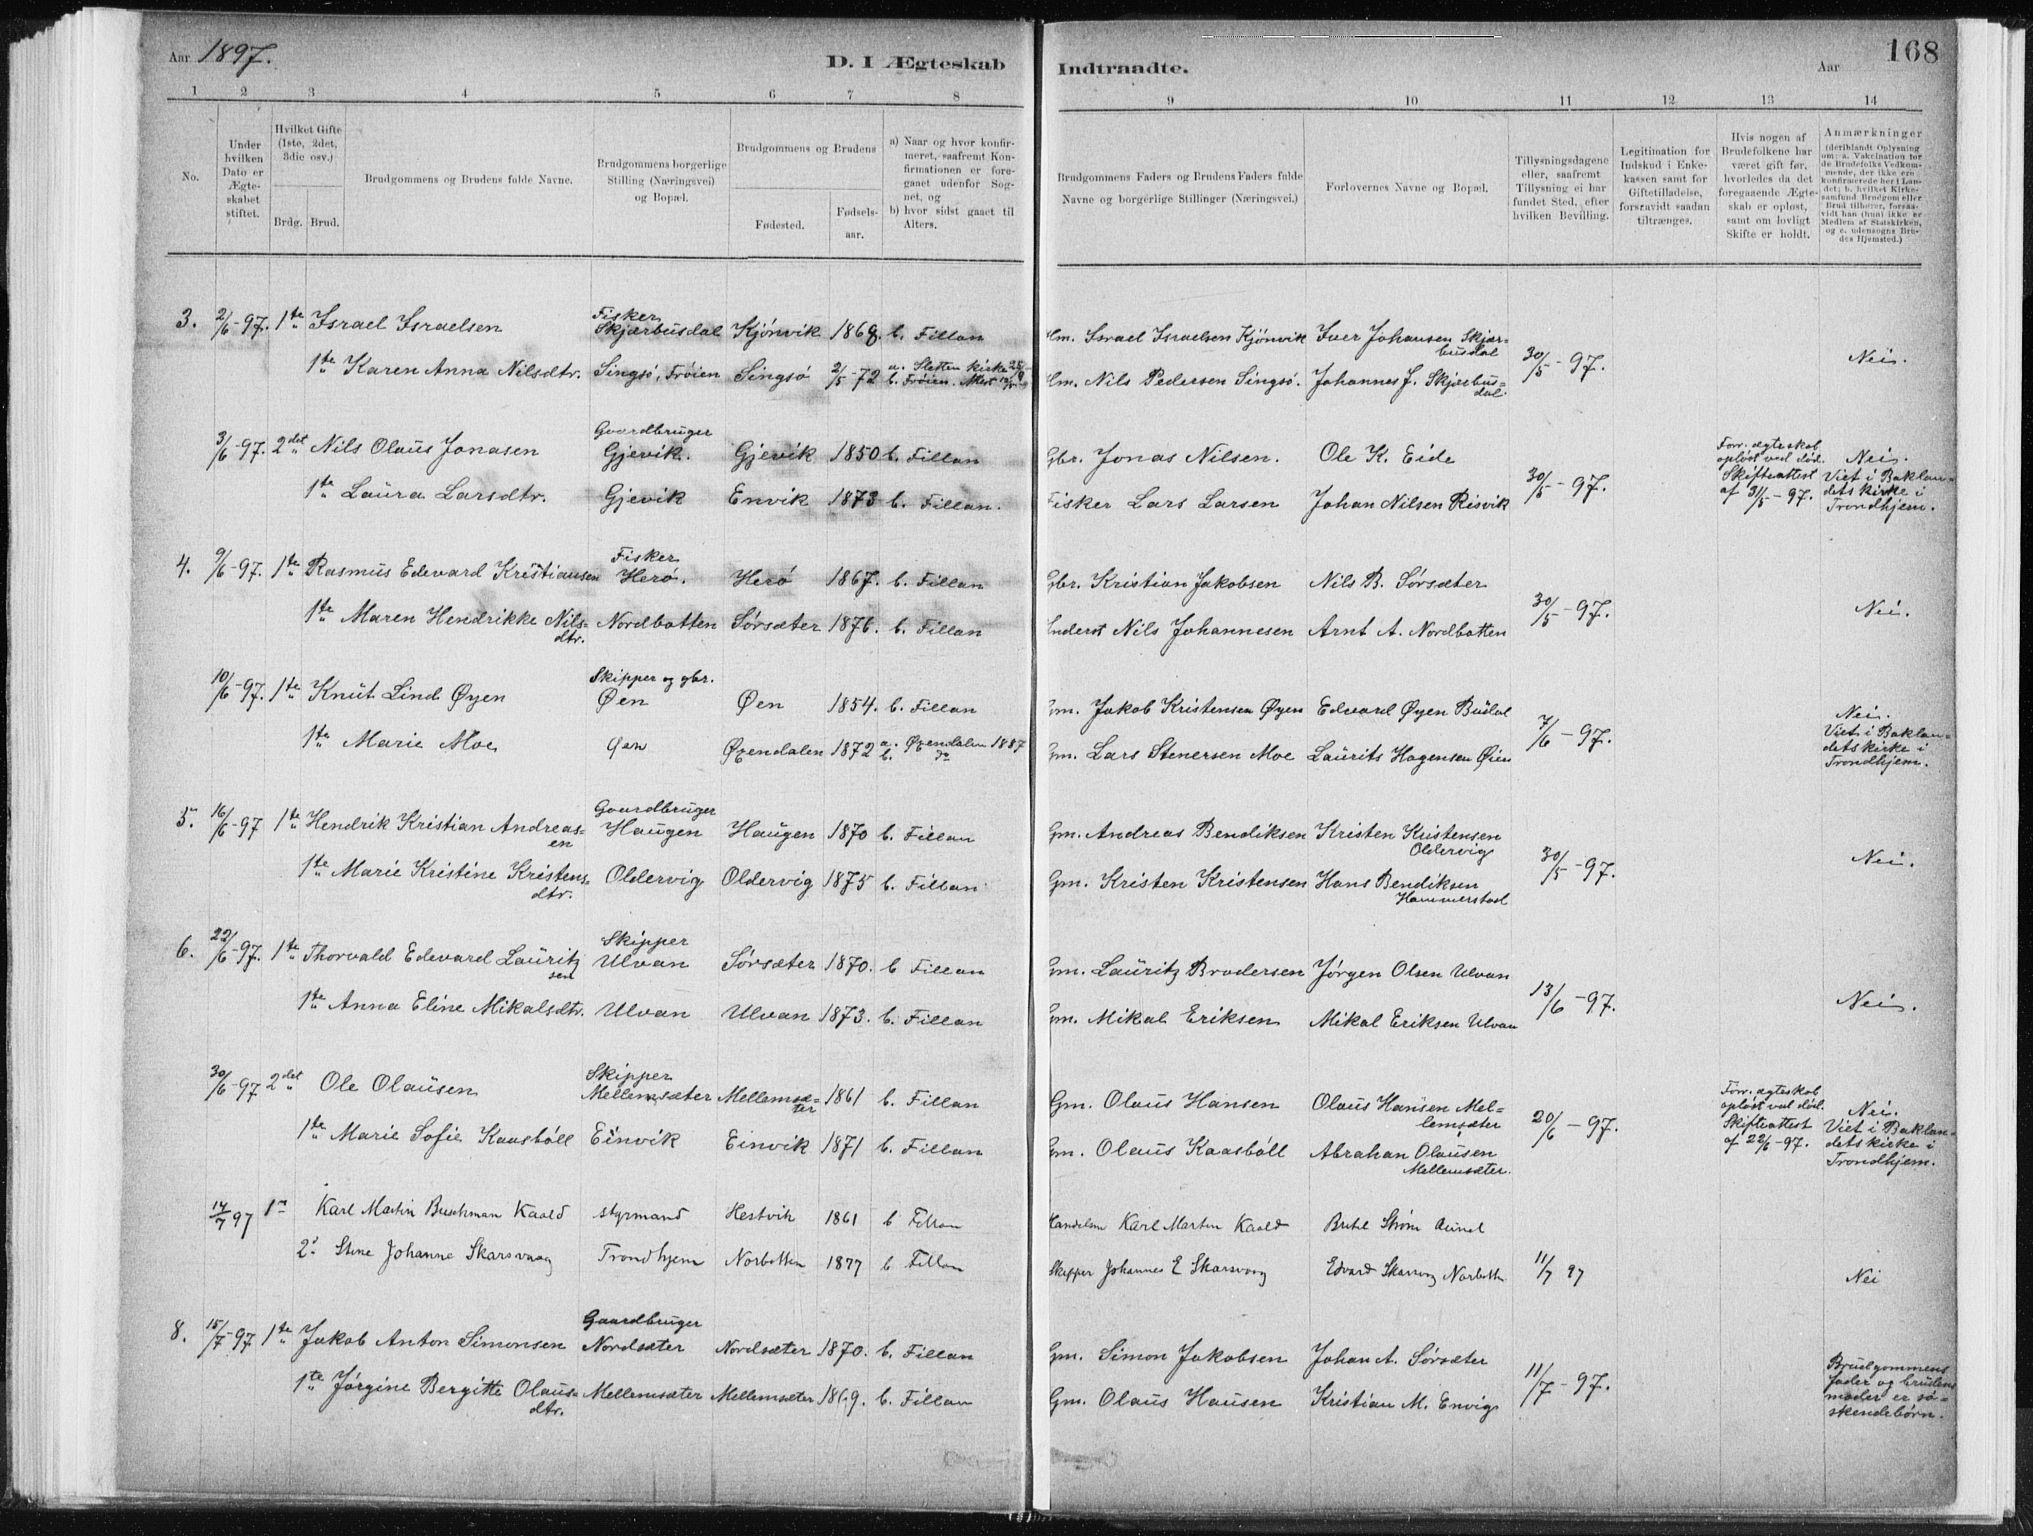 Aar 1897.
D. I Ægteskab
Indtraadte.
Aar
168
1 2 3 4 5 6 7 8
9 10 11 12 13 14
No.
Under hvilken Dato er Ægteskabet stiftet.
Hvilket Gifte (1ste, 2det, 3die osv.)
Brdg. Brud.
Brudgommens og Brudens fulde Navne.
Brudgommens borgerlige Stilling (Næringsvei) og Bopæl.
Brudgommens og Brudens
Fødested.
Fødselsaar.
a) Naar og hvor konfirmeret, saafremt Konfirmationen er foregaaet udenfor Sognet, og
b) hvor sidst gaaet til Alters.
Brudgommens Faders og Brudens Faders fulde Navne og borgerlige Stillinger (Næringsvei.)
Forlovernes Navne og Bopæl.
Tillysningsdagene eller, saafremt Tillysning ei har fundet Sted, efter hvilken Bevilling.
Legitimation for Indskud i Enkekassen samt for Giftetilladelse, forsravidt saadan tiltrænges.
Hvis nogen af Brudefolkene har været gift før, hvorledes da det foregaaende Ægteskab er opløst, samt om lovligt Skifte er holdt.
Anmærkninger (deriblandt Oplysning om: a. Vakcination for de Brudefolks Vedkommende, der ikke ere konfirmerede her i Landet; b. hvilket Kirkesamfund Brudgom eller Brud tilhører, forsaavidt han (hun) ikke er Medlem af Statskirken, og c. udensogns Brudes Hjemsted.)
3. 2/6-97. 1ste Israel Israelsen Fisker Skjærbusdal Kjönvik 1868. b. Fillan
Israel Israelsen Kjönvik Iver Johansen Skjærbusdal
1ste Karen Anna Nilsdtr. Singsö, Fröien Singsö 2/5-72 a. Sletten kirke b. Fröien.
Nils Pedersen Singsö. Johannes J. Skjærbusdal.
30/5-97. Nei.
3/6-97. 2det Nils Olaus Jonasen Gaardbruger Gjevik. Gjevik 1850 b. Fillan
Gbr. Jonas Nilsen. Ole K. Eide
1ste Laura Larsdtr. Gjevik Envik 1873 b. Fillan.
Fisker Lars Larsen Johan Nilsen Risvik
30/5-97. Forr. ægteskab opløst ved död. Skifteattest af 31/5-97. Nei. Viet i Baklandets kirke i Trondhjem.
4. 9/6-97. 1ste Rasmus Edevard Kristiansen Fisker Herö. Herö 1867. b. Fillan
Gbr. Kristian Jakobsen Nils B. Sörsæter
1ste Maren Hendrikke Nilsdtr. Nordbotten Sörsæter 1876. b. Fillan
Inderst Nils Johannesen Arnt A. Nordbotten
30/5-97. Nei.
10/6-97. 1ste Knut Lind Øyen Skipper og gbr. Øen Øen 1854. b. Fillan
Gm. Jakob Kristensen Øyen Edvard Øyen Busdal
1ste Marie Moe Øen Øxendalen 1872 a. Øxendalen 1887 b. do
Gm. Lars Stenersen Moe Laurits Hagensen Øien
7/6-97. Nei. Viet i Baklandets kirke i Trondhjem.
5. 16/6-97 1ste Hendrik Kristian Andreasen Gaardbruger Haugen Haugen 1870 b. Fillan
Gm. Andreas Bendiksen Kristen Kristensen Oldervig
1ste Marie Kristine Kristensdtr. Oldervig Oldervig 1875 b. Fillan
Gm. Kristen Kristensen Hans Bendiksen Hammerstad
30/5-97. Nei.
6. 22/6-97. 1ste Thorvald Edevard Lauritzsen Skipper Ulvan Sörsæter 1870. b Fillan
Gm. Lauritz Brodersen Jörgen Olsen Ulvan
1ste Anna Eline Mikalsdtr. Ulvan Ulvan 1873. b. Fillan
Gm. Mikal Eriksen Mikal Eriksen Ulvan
13/6-97. Nei.
30/6-97 2det Ole Olausen Skipper Mellemsæter Mellemsæter 1861 b. Fillan
Gm. Olaus Hansen Olaus Hansen Mellemsæter
1ste Marie Sofie Kaasböll Einvik Einvik 1871 b. Fillan
Gm. Olaus Kaasböll Abrahan Olausen Mellemsæter.
20/6-97. Forr. ægteskab opløst ved död. Skifteattest af 22/6-97. Nei. Viet i Baklandets kirke i Trondhjem.
14/7 97 1 Karl Martin Buschman Kaald Styrmand Hestvik 1861 b Fillan
Karl Martin Kaald Strøm
2. Stine Johanne Skarsvaag Trondhjem Norbotten 1877 b Fillan
Skipper Johannes E Skarsvaag Edvard Norbotten
11/7 97 Nei
8. 15/7-97. 1ste Jakob Anton Simonsen Gaardbruger Nordsæter Nordsæter 1870. b. Fillan
Gm. Simon Jakobsen Johan A. Sörsæter
1ste Jörgine Bergitte Olausdtr. Mellemsæter Mellemsæter 1869. b. Fillan
Gm. Olaus Hansen Kristian M. Envig
11/7-97. Brudgommens fader og brudens moder er söskendebörn.